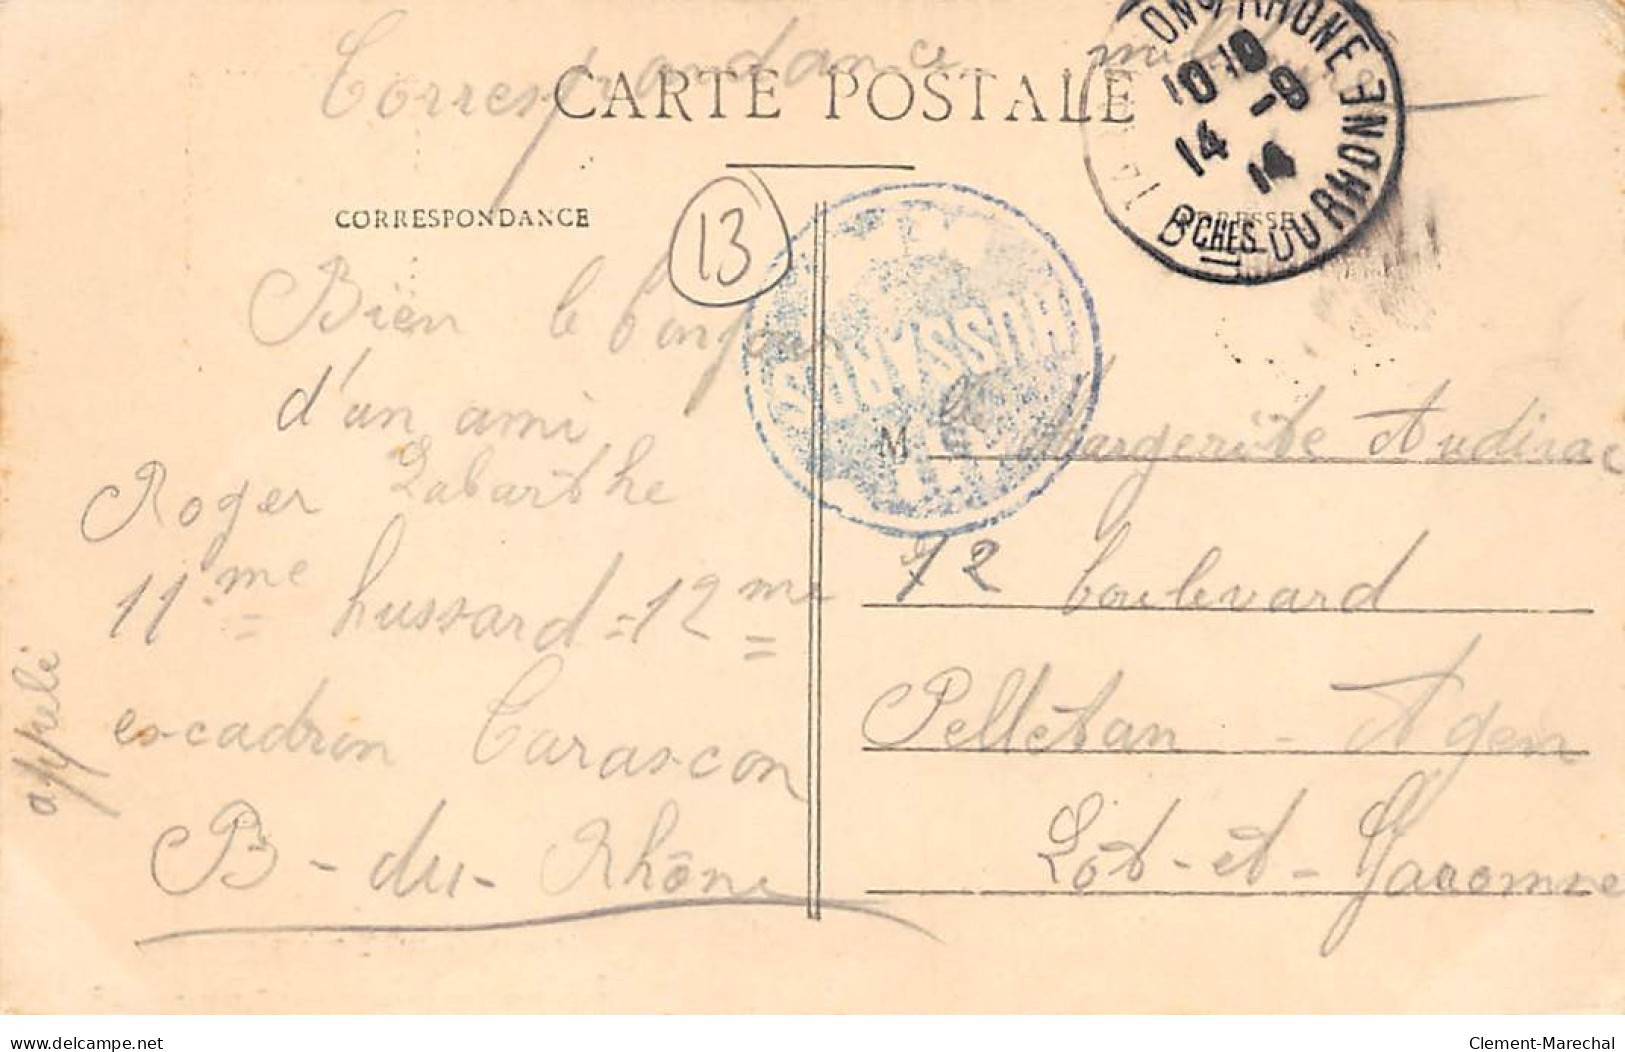 Correspondance
CARTE POSTALE
CORRESPONDANCE
13
Bien le bonjour
d'un ami
Roger Labarthe
11me hussard = 12me
escadron Tarascon
B - du - Rhône
appelé
HUSSARDS
RHONE
10 10
9
14 14
BCHES DU RHONE
M lle Margerite Audirac
72 boulevard
Pelletan - Agen
Lot - et - Garonne
delcampe.net
Clement-Marechal